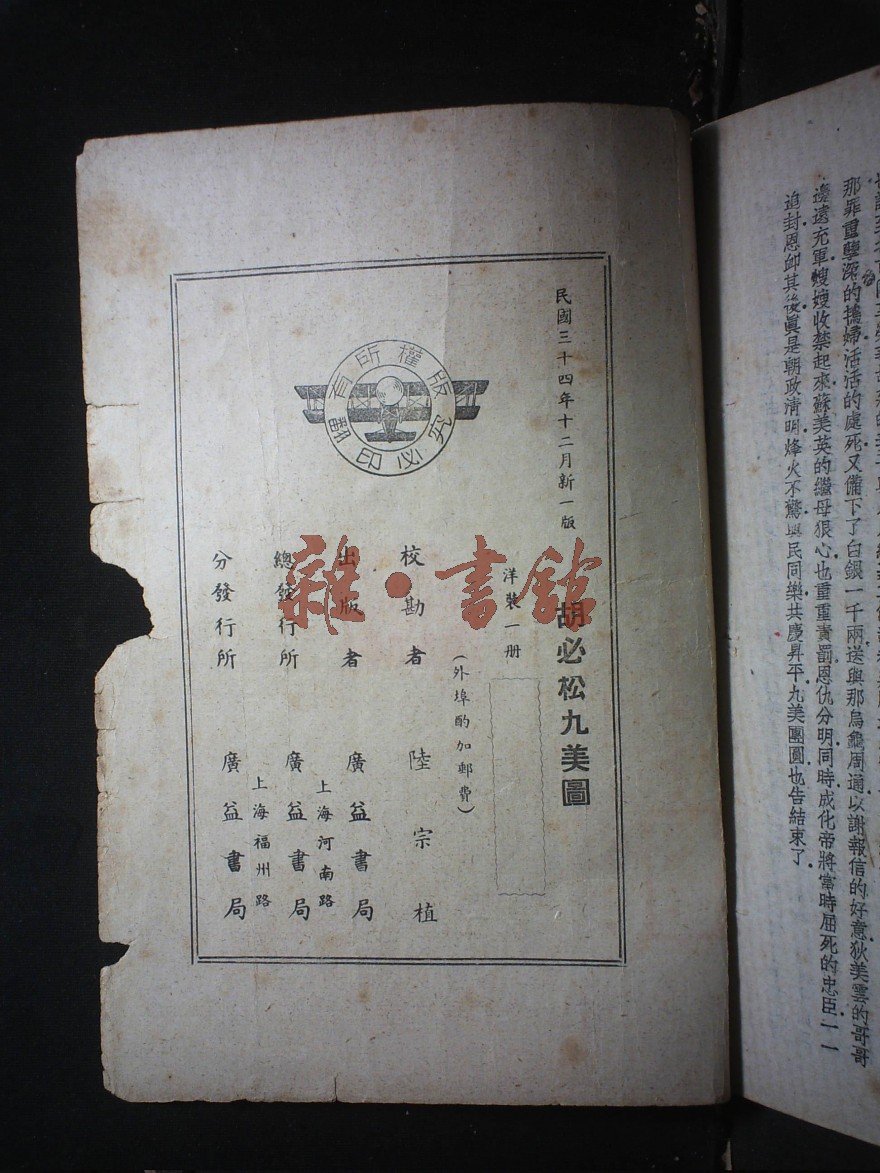 那罪重孽深的搗婦活活的處死又備下了白銀一千兩送與那烏龜周通以謝報信的好意狄美雲的哥哥
邊遠充軍嫂嫂收禁起來蘇美英的繼母狠心也重重責罰恩仇分明同時成化帝將當時屈死的忠臣一一
追封恩卹其後眞是朝政淸明烽火不驚與民同樂共慶昇平九美團圓也告結束了
民國三十四年十二月新一版
胡必松九美圖
洋裝一册
(外埠酌加郵費)
校勘者 陸宗植
出版者 廣益書局
上海河南路
總發行所 廣益書局
上海福州路
分發行所 廣益書局
版權所有
翻印必究
雜·書館